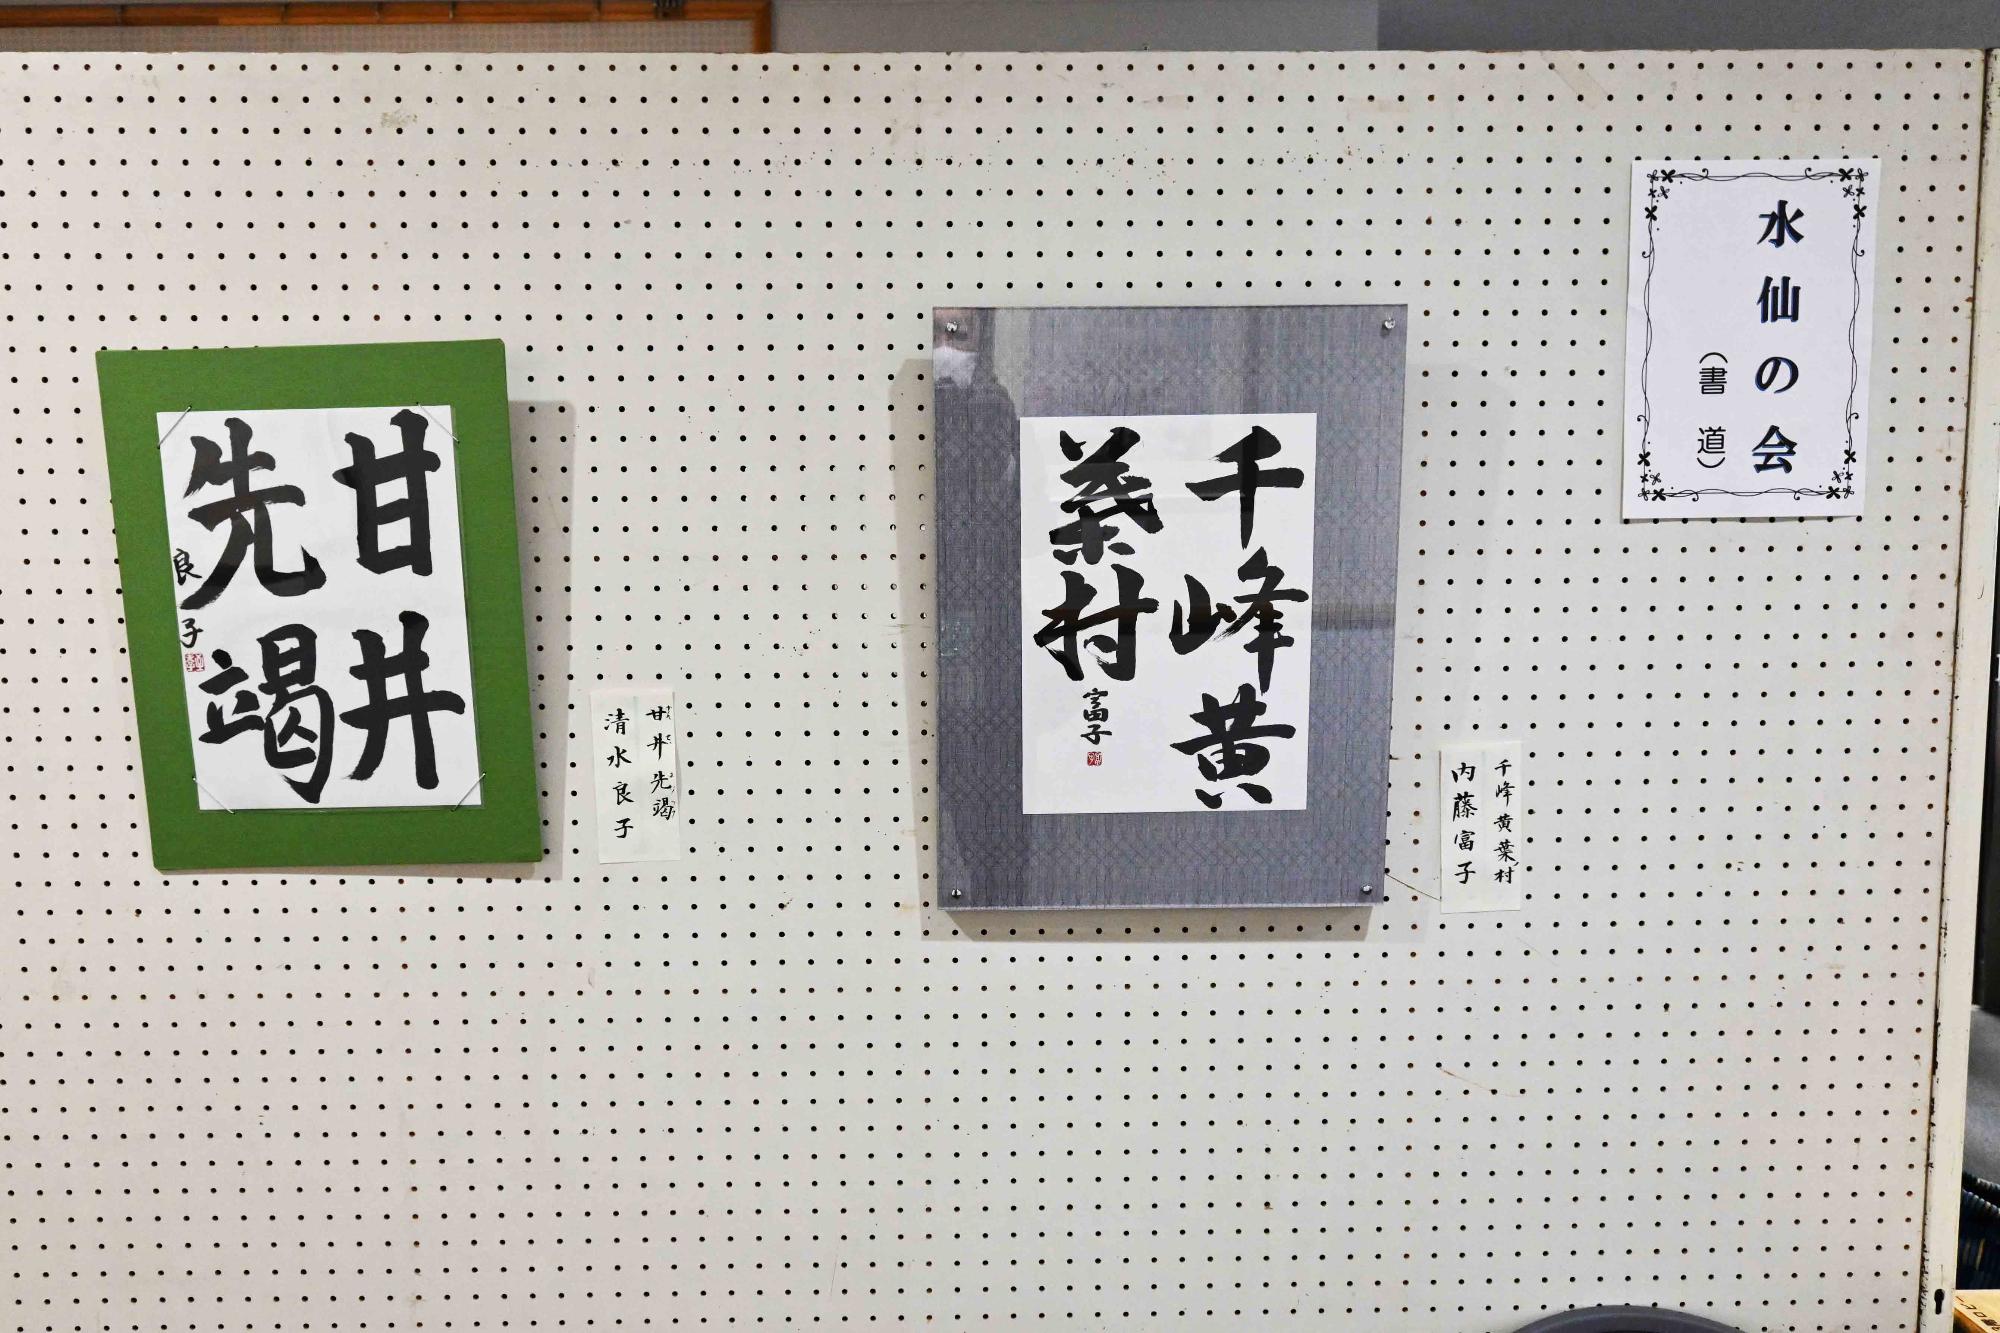 水仙の会
（書道）
千峰黄
葉村
富子
千峰黄葉村
内藤富子
甘井
先竭
良子
甘井先竭
清水良子